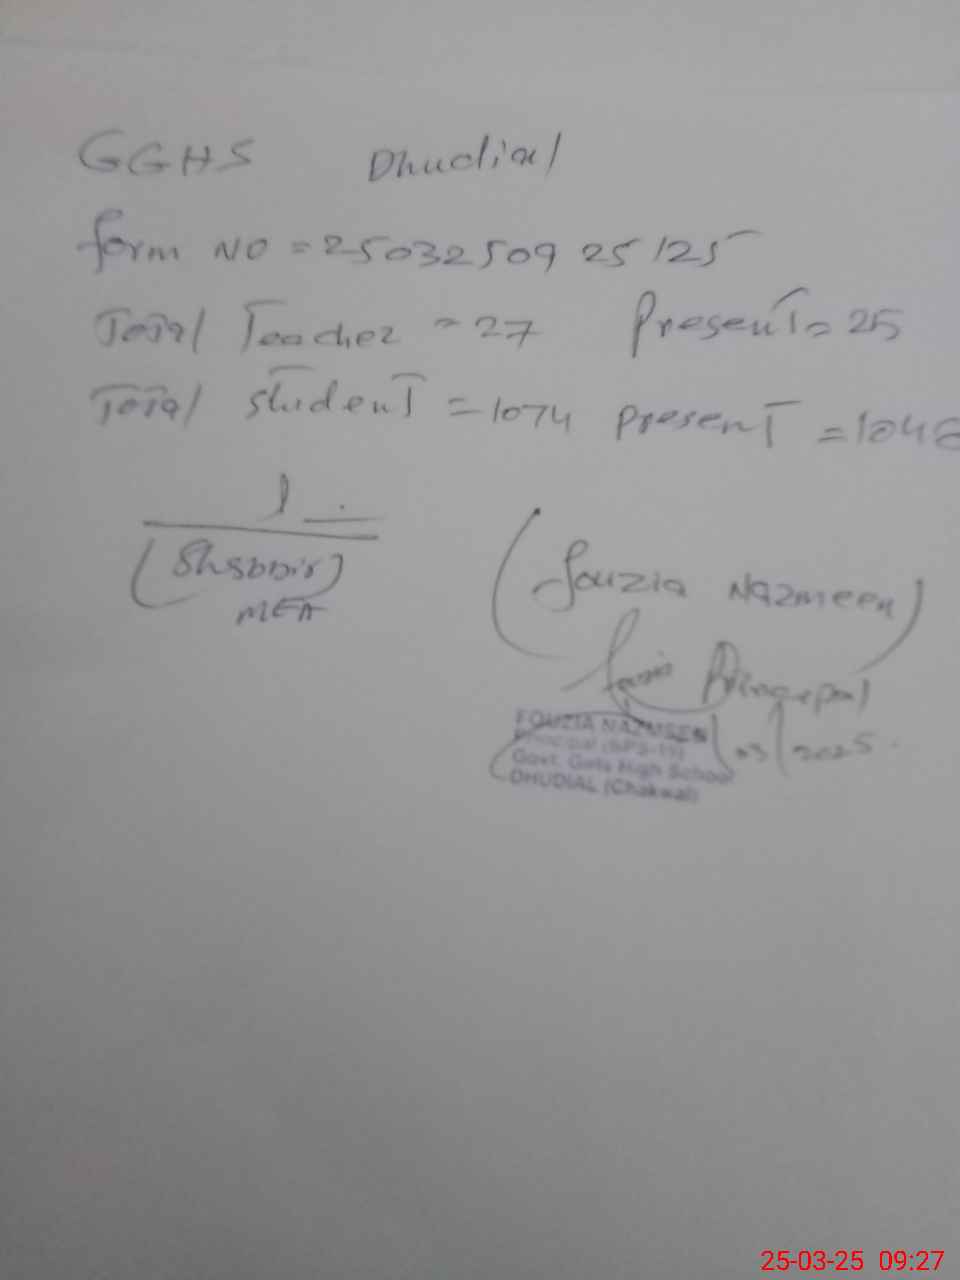 GGHS Dhudial
form NO = 2503250925125
Total Teacher = 27 Present = 25
Total student = 1074 present = 104
(Shabbir)
MEA
(fouzia Nazmeen)
Principal
03/2025.
FOUZIA NAZMEEN
Principal (BPS-19)
Govt. Girls High School
DHUDIAL (Chakwal)
25-03-25 09:27